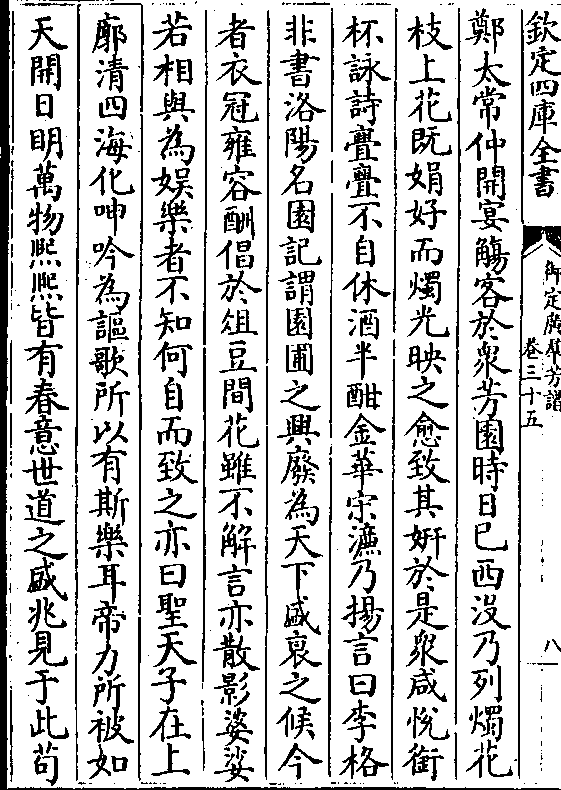 欽定四庫全書
御定廣羣芳譜
卷三十五
八
鄭太常仲開宴觴客於衆芳園時日已西没乃列燭花
枝上花既娟好而燭光映之愈致其妍於是衆咸悅銜
杯詠詩亹亹不自休酒半酣金華宋濂乃揚言曰李格
非書洛陽名園記謂園圃之興廢為天下盛衰之候今
者衣冠雍容酬倡於俎豆間花雖不解言亦散影婆娑
若相與為娯樂者不知何自而致之亦曰聖天子在上
廓清四海化呻吟為謳歌所以有斯樂耳帝力所被如
天開日明萬物熙熙皆有春意世道之盛兆見于此苟